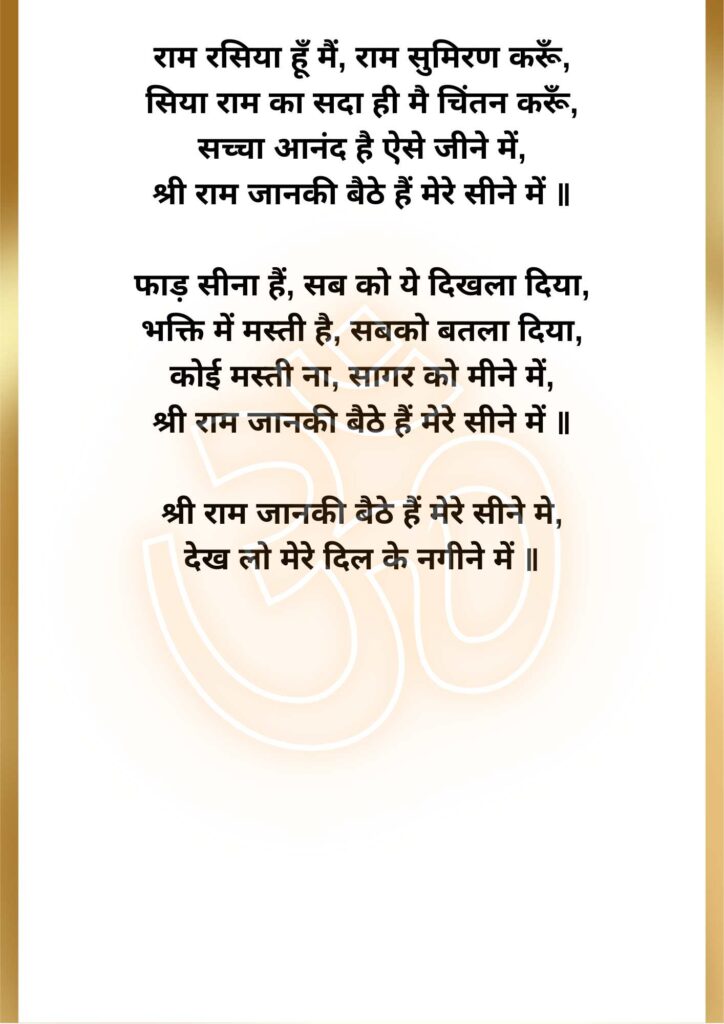 राम रसिया हूँ मैं, राम सुमिरण करूँ,
सिया राम का सदा ही मै चिंतन करूँ,
सच्चा आनंद है ऐसे जीने में,
श्री राम जानकी बैठे हैं मेरे सीने में ॥
फाड़ सीना हैं, सब को ये दिखला दिया,
भक्ति में मस्ती है, सबको बतला दिया,
कोई मस्ती ना, सागर को मीने में,
श्री राम जानकी बैठे हैं मेरे सीने में ॥
श्री राम जानकी बैठे हैं मेरे सीने मे,
देख लो मेरे दिल के नगीने में ॥
ॐ